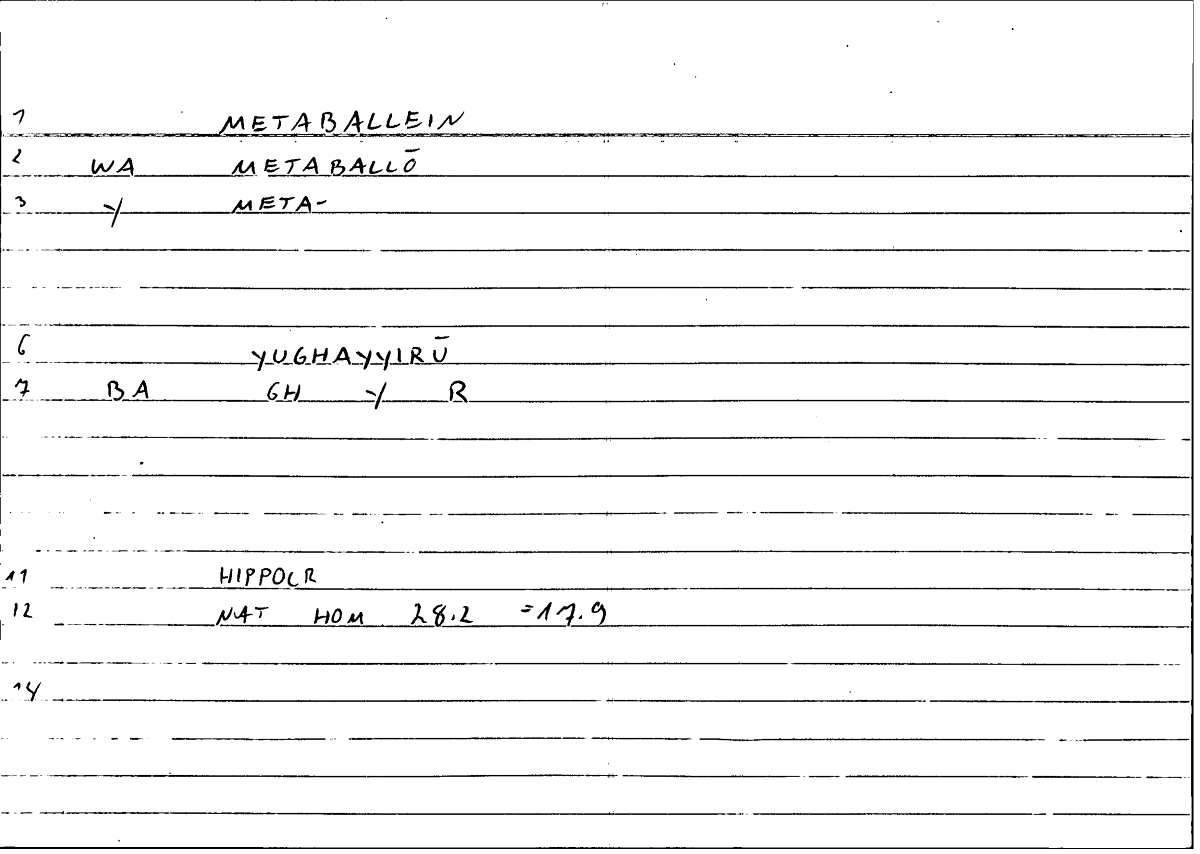 1 METABALLEIN
2 WA METABALLŌ
3 Y META-
6 YUGHAYYIRŪ
7 BA GH Y R
11 HIPPOCR
12 NAT HOM 28.2 =17.9
14